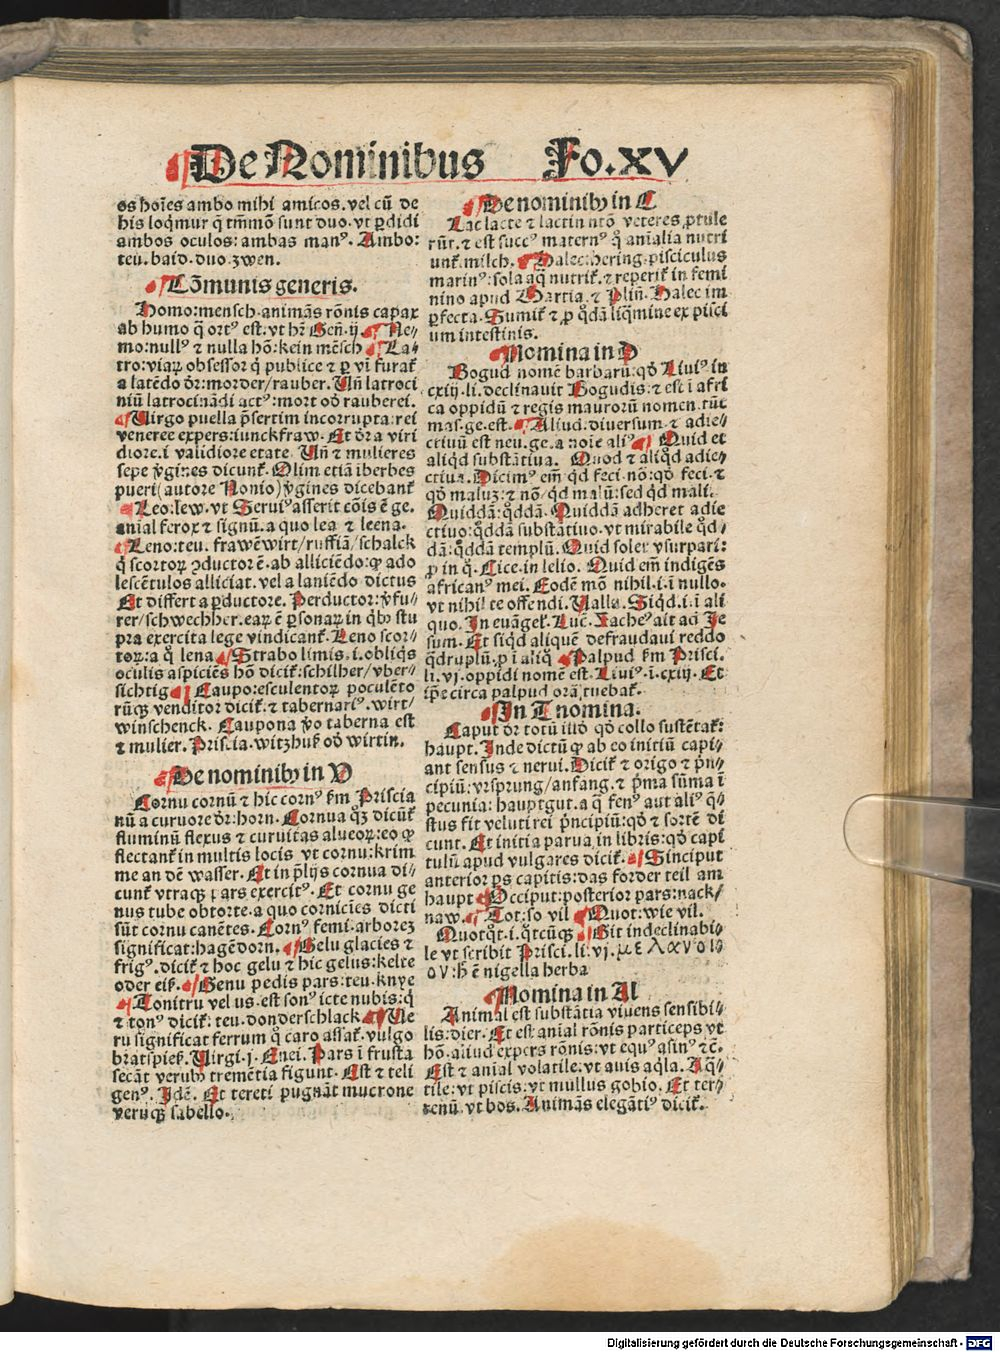 De Nominibus Fo.XV
os hoīes ambo mihi amicos. vel cū de
his loqͥmur q̄ tm̄mō sunt duo. vt ꝑdidi
ambos oculos: ambas manꝰ. Ambo:
teu. baid. duo. zwen.
Cōmunis generis.
Homo: mensch. animās rōnis capax
ab humo q̄ ortꝰ est: vt hr̄ Geñ. ij. Ne⸗
mo: nullꝰ ⁊ nulla hō: kein mēsch La⸗
tro: viaꝝ obsessor q̄ publice ⁊ ꝑ vī furat᷑
a latēdo dr̄: morder/ rauber. Uñ latroci
niū latrocinādi actꝰ: mort oď rauberei.
Uirgo puella p̄sertim incorrupta: rei
veneree expers: iunckfraw. Et dr̄ a viri
diore. i validiore etate Uñ ⁊ mulieres
sepe v̄gines dicunt᷑. Olim etiā iberbes
pueri (autore Nonio) v̄gines dicebant᷑
Leo: lew. vt Seruiꝰ asserit cōis ē ge.
anial ferox ⁊ signū. a quo lea ⁊ leena.
Leno: teu. frawē wirt/ ruffiā/ schalck
q̄ scortoꝝ ꝯductor ē. ab alliciēdo: ꝙ ado
lescētulos alliciat. vel a laniēdo dictus
Et differt a ꝑductore. Perductor: v̄fu⸗
rer/ schwechher. eaꝝ ē ꝑsonaꝝ in qͥbꝰ stu
pra exercita lege vindicant᷑. Leno scor⸗
toꝝ: a q̊ lena Strabo limis. i. obliqͥs
oculis aspiciēs hō dicit᷑: schilher/ vber⸗
sichtig Caupo: esculentoꝝ poculēto
rūqꝫ venditor dicit᷑ ⁊ tabernariꝰ. wirt/
winschenck. Caupona v̄o taberna est
⁊ mulier. Priscia. witzhuß oď wirtin.
De nominibꝰ in V
Cornu cornū ⁊ hic cornꝰ ẜm Priscia
nū a curuore dr̄: horn. Cornua qͦꝫ dicūt᷑
fluminū flexus ⁊ curuitas alueoꝝ: eo ꝙ
flectant᷑ in multis locis vt cornu: krim
me an dē wasser. Et in p̄lijs cornua di⸗
cunt᷑ vtraqꝫ pars exercitꝰ. Et cornu ge
nus tube obtorte. a quo cornicīes dicti
sūt cornu canētes. Cornꝰ femi. arboreꝫ
significat: hagēdorn. Gelu glacies ⁊
frigꝰ. dicit᷑ ⁊ hoc gelu ⁊ hic gelus: kelte
oder eiß. Genu pedis pars: teu. knye
Tonitru vel us. est sonꝰ icte nubis: q̄
⁊ tonꝰ dicit᷑: teu. donderschlack. Ue
ru significat ferrum q̊ caro assat᷑. vulgo
bratspieß. Uirgi. j. Enei. Pars ī frusta
secāt verubꝰ tremētia figunt. Est ⁊ teli
genꝰ. Idē. Et tereti pugnāt mucrone
veruqꝫ sabello.
De nominibꝰ in C
Lac lacte ⁊ lactin nō veteres ꝓtule
rūt. ⁊ est succꝰ maternꝰ q̊ anialia nutri
unt᷑. milch. Halec: hering. pisciculus
marinꝰ: sola aqͣ nutrit᷑. ⁊ reperit᷑ in femi
nino apud Martia. ⁊ Pliñ. Halec im
ꝑfecta. Sumit᷑ ⁊ ꝓ qͦdā liqͥmine ex pisci
um intestinis.
Nomina in D
Bogud nomē barbarū: qď Liuiꝰ in
cxiij. li. declinauit Bogudis: ⁊ est ī afri
ca oppidū ⁊ regis maurorū nomen. tūc
mas. ge. est. Aliud: diuersum ⁊ adie⸗
ctiuū est neu. ge. a noīe aliꝰ Quid et
aliqͥd substātiua. Quod ⁊ aliqͦd adie⸗
ctiua. Dicimꝰ em̄ qͥd feci. nō: qď feci. ⁊
qď maluꝫ: ⁊ nō qͥd malū: sed qͥd mali.
Quiddā: qͦddā. Quiddā adheret adie
ctiuo: qͦddā substātiuo. vt mirabile qͥd⸗
dā: qͦddā templū. Quid solet vsurpari:
ꝓ in q̊. Cice. in lelio. Quid em̄ indigēs
africanꝰ mei. Eodē mō nihil. i. ī nullo.
vt nihil te offendi. Ualla. Siqͥd. i. ī ali
quo. In euāgel. Luc̄. Zacheꝰ ait ad Je
sum. Et siqͥd aliquē defraudaui reddo
qͣdruplū. ꝓ ī aliq̊ Palpud ẜm Prisci.
li. vj. oppidi nomē est. Liuiꝰ. i. cxiij. Et
ip̄e circa palpud orā tuebat᷑.
In T nomina.
Caput dr̄ totū illď qď collo sustētat᷑:
haupt. Inde dictū ꝙ ab eo initiū capi⸗
ant sensus ⁊ nerui. Dicit᷑ ⁊ origo ⁊ p̄n⸗
cipiū: vrsprung/ anfang. ⁊ p̄ma sūma ī
pecunia: hauptgut. a q̊ fenꝰ aut aliꝰ q̄⸗
stus fit veluti rei p̄ncipiū: qď ⁊ sortē di
cunt. Et initia parua in libris: qď capi
tulū apud vulgares dicit᷑. Sinciput
anterior ps capitis: das forder teil am
haupt Occiput: posterior pars: nack/
naw. Tot: so vil Quot: wie vil.
Quotqͦt. i. qͦtcūqꝫ Git indeclinabi⸗
le vt scribit Prisci. li. vj. μελανοιο
ου: h̄ ē nigella herba
Nomina in Al
Animal est substātia viuens sensibi⸗
lis: dier. Et est anial rōnis particeps vt
hō. aliud expers rōnis: vt equꝰ asinꝰ ⁊c̄.
Est ⁊ anial volatile. vt auis aqͥla. Aqͣ⸗
tile: vt piscis: vt mullus gobio. Et ter⸗
renū. vt bos. Animās elegātiꝰ dicit᷑.
Digitalisierung gefördert durch die Deutsche Forschungsgemeinschaft - DFG